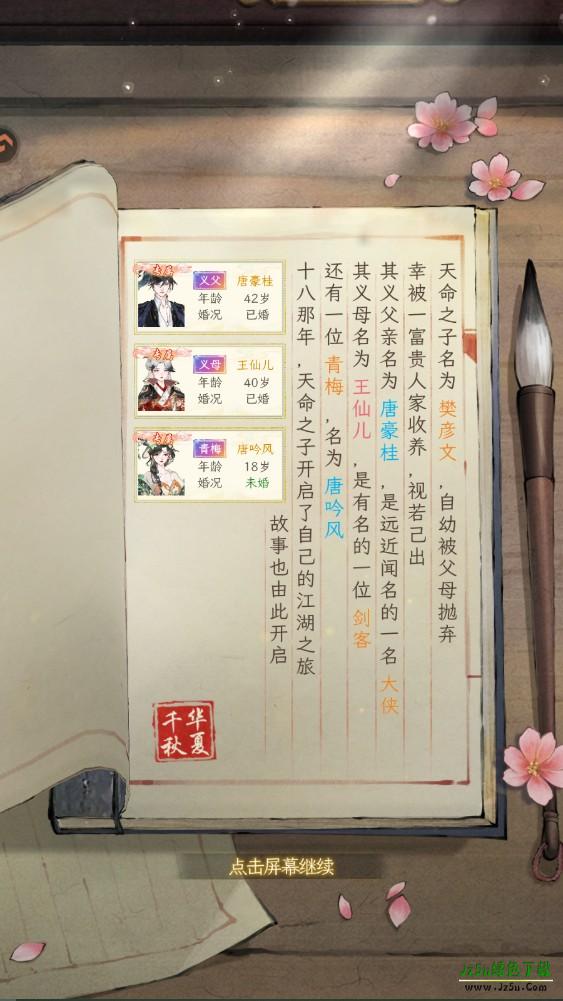 天命之子名为 樊彦文 ，自幼被父母抛弃
幸被一富贵人家收养，视若己出
其义父亲名为 唐豪桂 ，是远近闻名的一名 大侠
其义母名为 王仙儿 ，是有名的一位 剑客
还有一位 青梅 ，名为 唐吟风
十八那年，天命之子开启了自己的江湖之旅
故事也由此开启
义父 唐豪桂
年龄 42岁
婚况 已婚
义母 王仙儿
年龄 40岁
婚况 已婚
青梅 唐吟风
年龄 18岁
婚况 未婚
华夏
千秋
点击屏幕继续
Jz5u绿色下载
www.Jz5u.Com